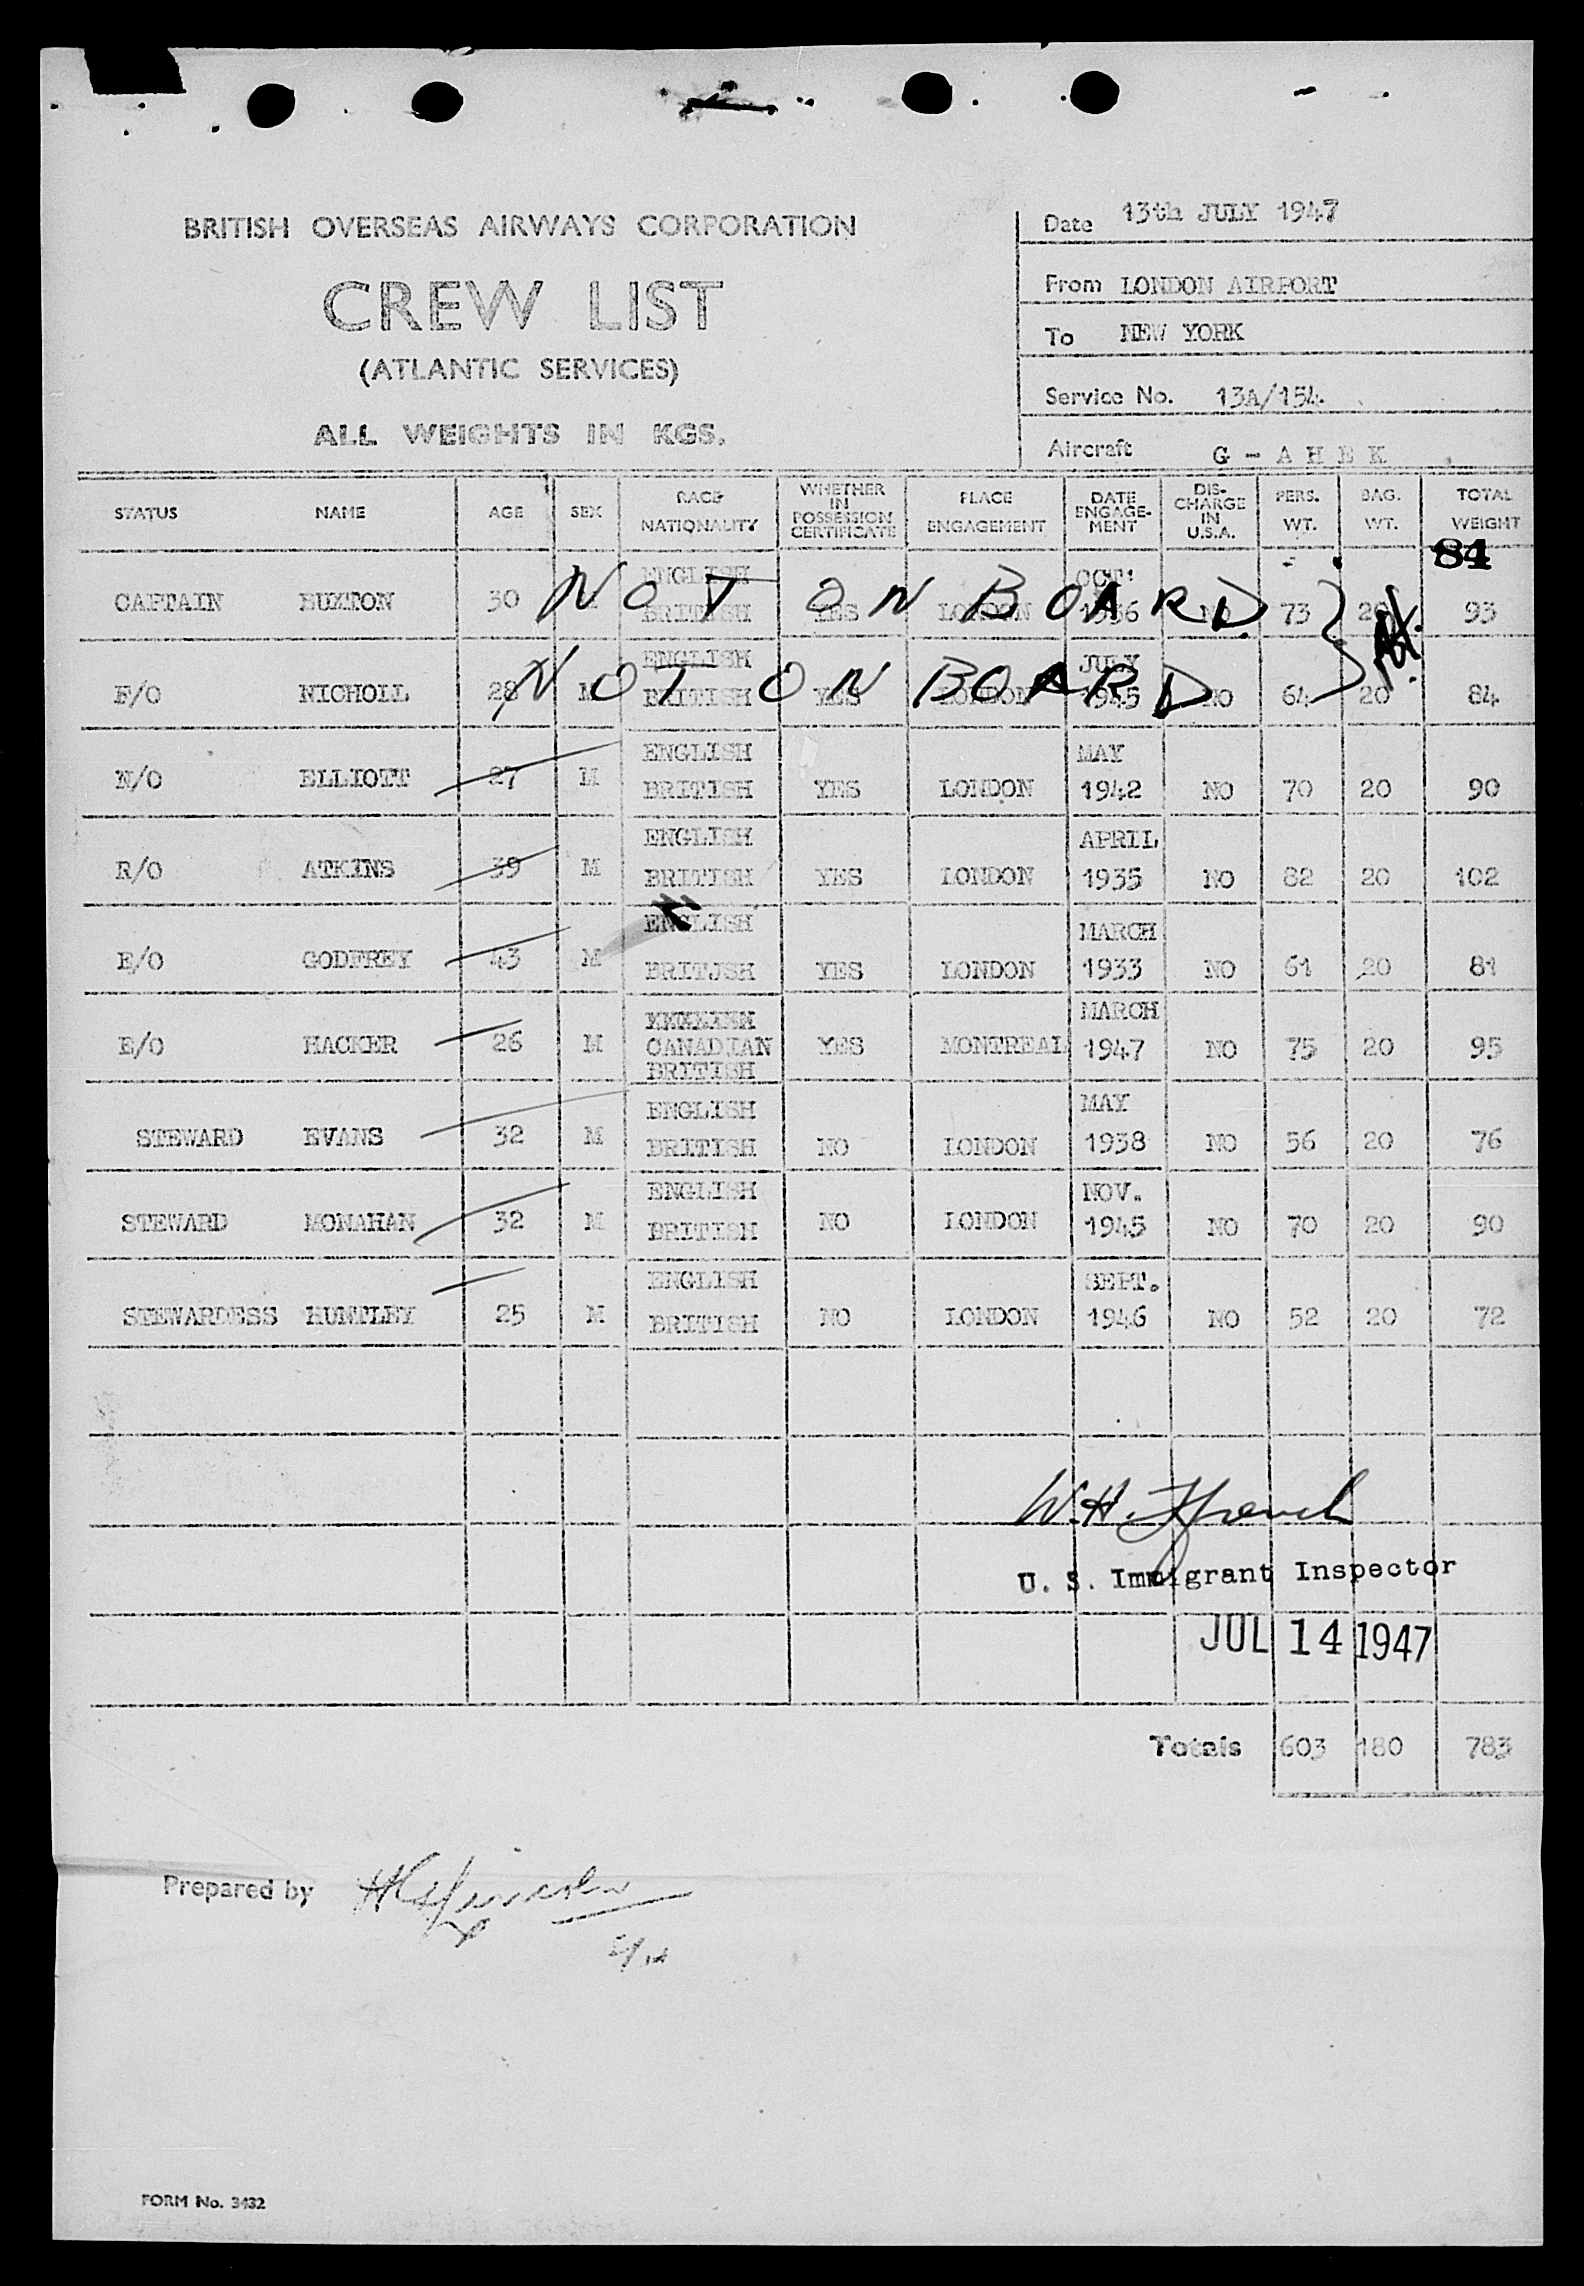 BRITISH OVERSEAS AIRWAYS CORPORATION
CREW LIST
(ATLANTIC SERVICES)
ALL WEIGHTS IN KGS.
Date 13th JULY 1947
From LONDON AIRPORT
To NEW YORK
Service No. 13A/154.
Aircraft G - A H E K
STATUS NAME AGE SEX RACE NATIONALITY WHETHER IN POSSESSION CERTIFICATE PLACE ENGAGEMENT DATE ENGAGE-MENT DIS-CHARGE IN U.S.A. PERS. WT. BAG. WT. TOTAL WEIGHT
84
ENGLISH OCT!
CAPTAIN BUXTON 30 BRITISH YES LONDON 1936 NO 73 20 93
NOT ON BOARD
ENGLISH JULY
F/O NICHOLL 28 M BRITISH YES LONDON 1945 NO 64 20 84
NOT ON BOARD
ENGLISH MAY
N/O ELLIOTT 27 M BRITISH YES LONDON 1942 NO 70 20 90
ENGLISH APRIL
R/O ATKINS 39 M BRITISH YES LONDON 1935 NO 82 20 102
ENGLISH MARCH
E/O GODFREY 43 M BRITJSH YES LONDON 1933 NO 61 20 81
MARCH
E/O HACKER 26 M CANADIAN YES MONTREAL 1947 NO 75 20 95
BRITISH
ENGLISH MAY
STEWARD EVANS 32 M BRITISH NO LONDON 1938 NO 56 20 76
ENGLISH NOV.
STEWARD MONAHAN 32 M BRITISH NO LONDON 1945 NO 70 20 90
ENGLISH SEPT.
STEWARDESS HUNTLEY 25 M BRITISH NO LONDON 1946 NO 52 20 72
W.H. French
U. S. Immigrant Inspector
JUL 14 1947
Totals 603 180 783
Prepared by
FORM No. 3432